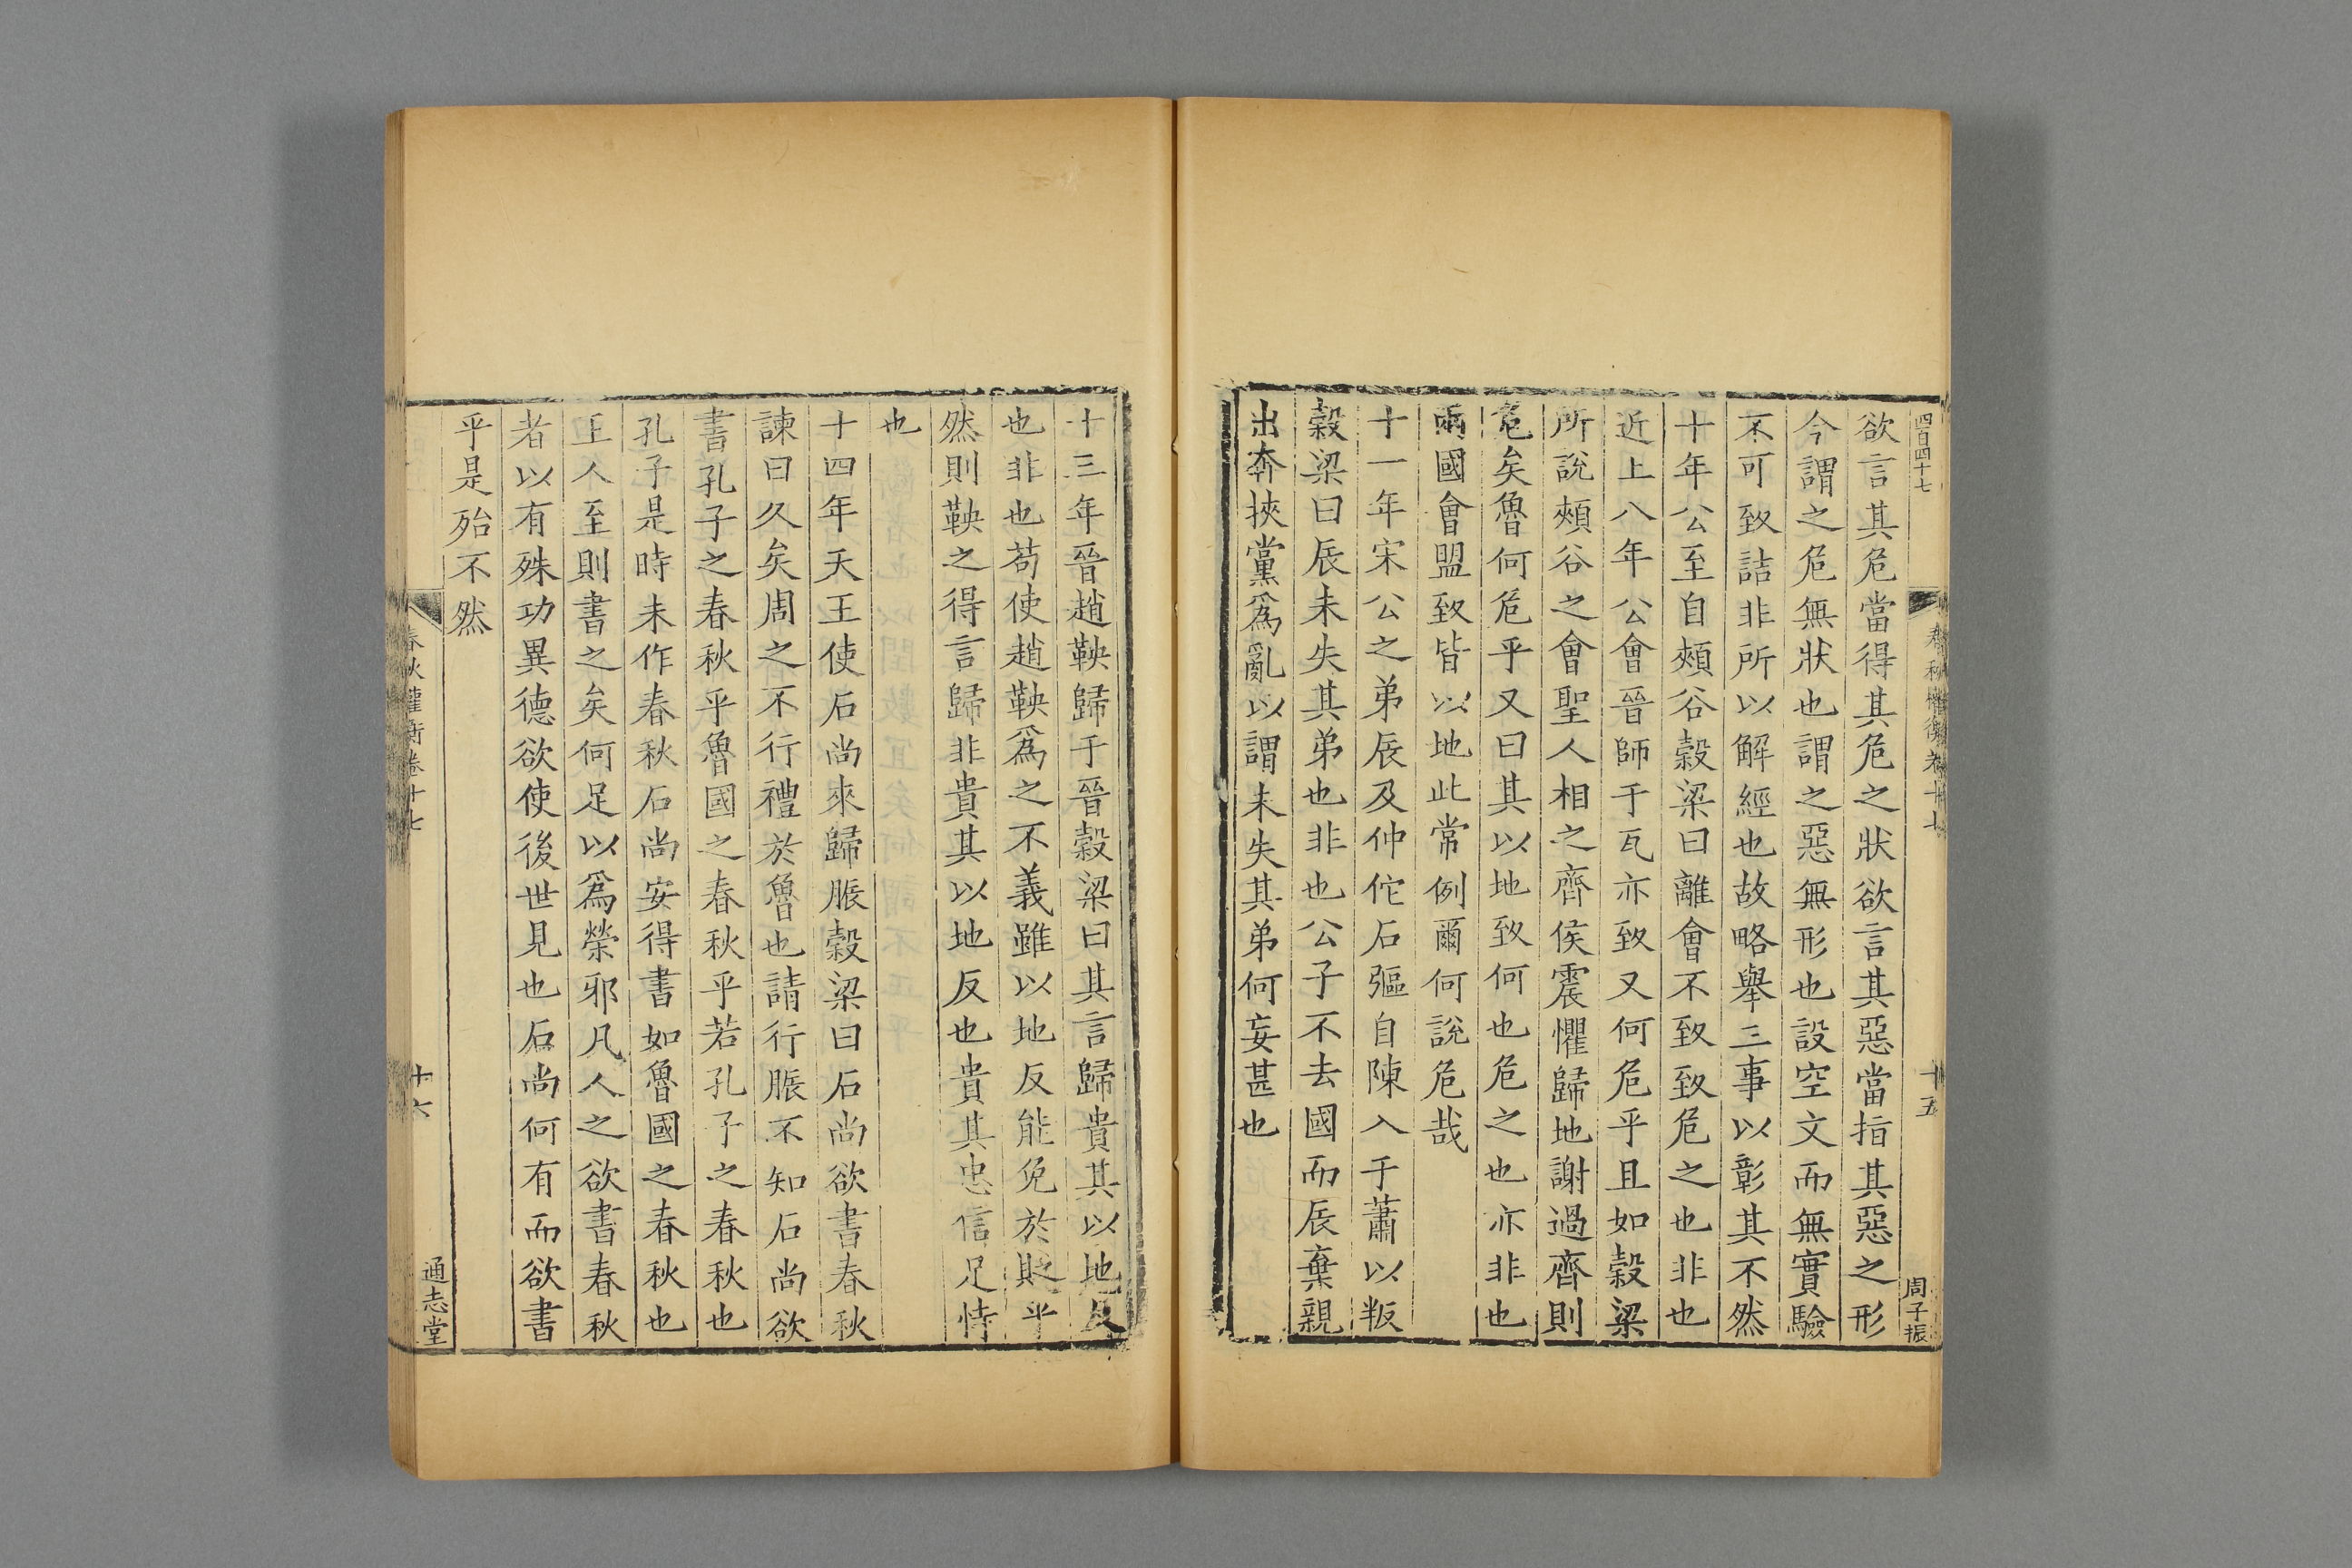 四百四十七
春秋權衡卷十七
十五
周子振
欲言其危當得其危之狀欲言其惡當指其惡之形
今謂之危無狀也謂之惡無形也設空文而無實驗
不可致詰非所以解經也故略舉三事以彰其不然
十年公至自頰谷穀梁曰離會不致致危之也非也
近上八年公會晉師于瓦亦致又何危乎且如穀梁
所說頰谷之會聖人相之齊侯震懼歸地謝過齊則
危矣魯何危乎又曰其以地致何也危之也亦非也
兩國會盟致皆以地此常例爾何說危哉
十一年宋公之弟辰及仲佗石彄自陳入于蕭以叛
穀梁曰辰未失其弟也非也公子不去國而辰棄親
出奔挾黨爲亂以謂未失其弟何妄甚也
十三年晉趙鞅歸于晉穀梁曰其言歸貴其以地反
也非也苟使趙鞅爲之不義雖以地反能免於貶乎
然則鞅之得言歸非貴其以地反也貴其忠信足恃
也
十四年天王使石尚來歸脤穀梁曰石尚欲書春秋
諫曰久矣周之不行禮於魯也請行脤不知石尚欲
書孔子之春秋乎魯國之春秋乎若孔子之春秋也
孔子是時未作春秋石尚安得書如魯國之春秋也
王人至則書之矣何足以爲榮邪凡人之欲書春秋
者以有殊功異德欲使後世見也石尚何有而欲書
乎是殆不然
春秋權衡卷十七
十六
通志堂